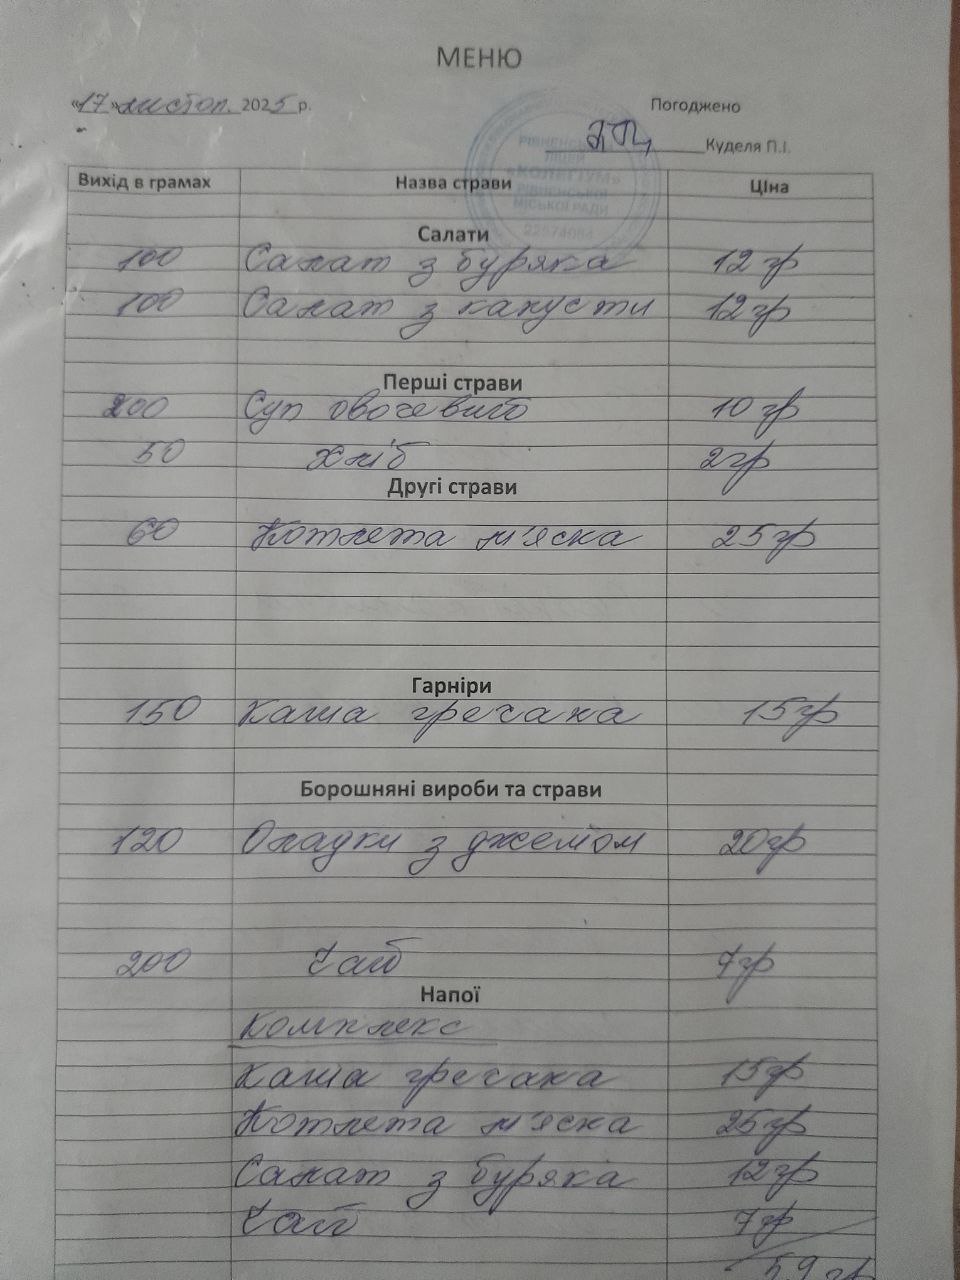 МЕНЮ
«17» листоп. 2025 р.
Погоджено
Куделя П.І.
РІВНЕНСЬКИЙ
ЛІЦЕЙ
«КОЛЕГІУМ»
РІВНЕНСЬКОЇ
МІСЬКОЇ РАДИ
Вихід в грамах Назва страви Ціна
Салати
100 Салат з буряка 12 гр
100 Салат з капусти 12 гр
Перші страви
200 Суп овочевий 10 гр
50 Хліб 2 гр
Другі страви
60 Котлета м'ясна 25 гр
Гарніри
150 Каша гречана 15 гр
Борошняні вироби та страви
120 Оладки з джемом 20 гр
200 Чай 7 гр
Напої
Комплекс
Каша гречана 15 гр
Котлета м'ясна 25 гр
Салат з буряка 12 гр
Чай 7 гр
59 гр